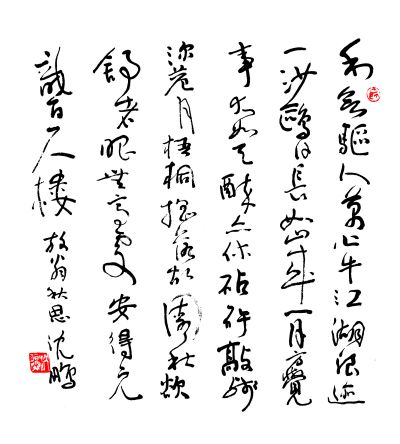 利欲驅人萬火牛江湖浪迹
一沙鷗日長如歲閒方覺
事大如天醉亦休砧杵敲殘
深巷月梧桐搖落故園秋欲
舒老眼無高處安得元
龍百尺樓放翁秋思沈鵬